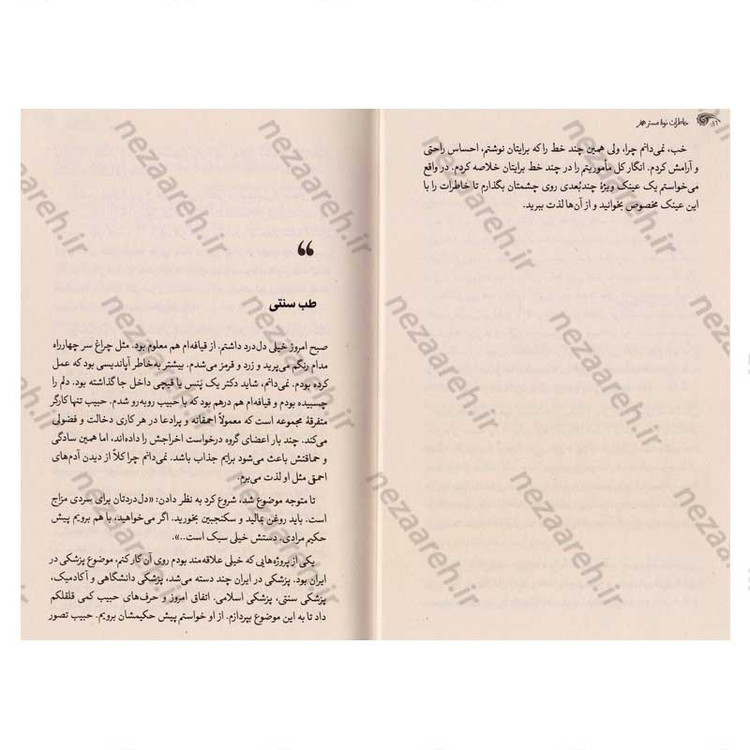 ۱۶ خاطرات نوۀ مستر همفر
خب، نمی‌دانم چرا، ولی همین چند خط را که برایتان نوشتم، احساس راحتی
و آرامش کردم. انگار کل مأموریتم را در چند خط برایتان خلاصه کردم. در واقع
می‌خواستم یک عینک ویژۀ چندبُعدی روی چشمتان بگذارم تا خاطرات را با
این عینک مخصوص بخوانید و از آن‌ها لذت ببرید.
“
طب سنتی
صبح امروز خیلی دل‌درد داشتم، از قیافه‌ام هم معلوم بود. مثل چراغ سر چهارراه
مدام رنگم می‌پرید و زرد و قرمز می‌شدم. بیشتر به‌خاطر آپاندیسی بود که عمل
کرده بودم. نمی‌دانم، شاید دکتر یک پَنس یا قیچی داخل جا گذاشته بود. دلم را
چسبیده بودم و قیافه‌ام هم درهم بود که با حبیب روبه‌رو شدم. حبیب تنها کارگر
متفرقۀ مجموعه است که معمولاً احمقانه و پرادعا در هر کاری دخالت و فضولی
می‌کند. چند بار اعضای گروه درخواست اخراجش را داده‌اند، اما همین سادگی
و حماقتش باعث می‌شود برایم جذاب باشد. نمی‌دانم چرا کلاً از دیدن آدم‌های
احمق مثل او لذت می‌برم.
تا متوجه موضوع شد، شروع کرد به نظر دادن: «دل‌دردتان برای سردی مزاج
است. باید روغن بمالید و سکنجبین بخورید. اگر می‌خواهید، با هم برویم پیش
حکیم مرادی. دستش خیلی سبک است..».
یکی از پروژه‌هایی که خیلی علاقه‌مند بودم روی آن کار کنم، موضوع پزشکی در
ایران بود. پزشکی در ایران چند دسته می‌شد، پزشکی دانشگاهی و آکادمیک،
پزشکی سنتی، پزشکی اسلامی. اتفاق امروز و حرف‌های حبیب کمی قلقلکم
داد تا به این موضوع بپردازم. از او خواستم پیش حکیمشان برویم. حبیب تصور
nezaareh.ir